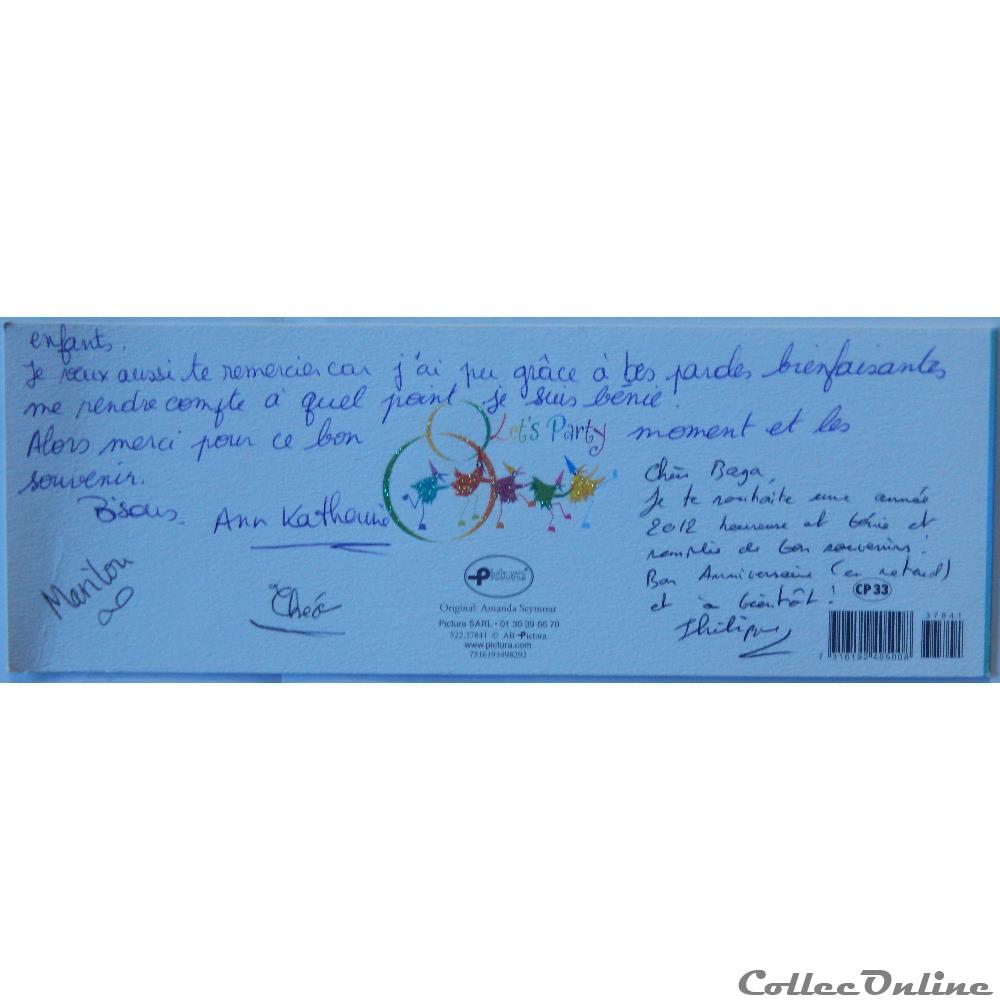 enfants.
Je veux aussi te remercier car j'ai pu grâce à tes paroles bienfaisantes
me rendre compte à quel point je suis bénie.
Alors merci pour ce bon moment et les
souvenir.
Bisous. Ann Katherine
Marilou
Théo
Let's Party
Pictura
Original: Amanda Seymour
Pictura SARL • 01 30 39 66 70
522.37841 © AB Pictura
www.pictura.com
7316191498292
Cher Baga,
Je te souhaite une année
2012 heureuse et bénie et
remplie de bon souvenirs!
Bon Anniversaire (en retard)
et à bientôt!
Philippe
CP 33
37841
7 316192 405008
CollecOnline